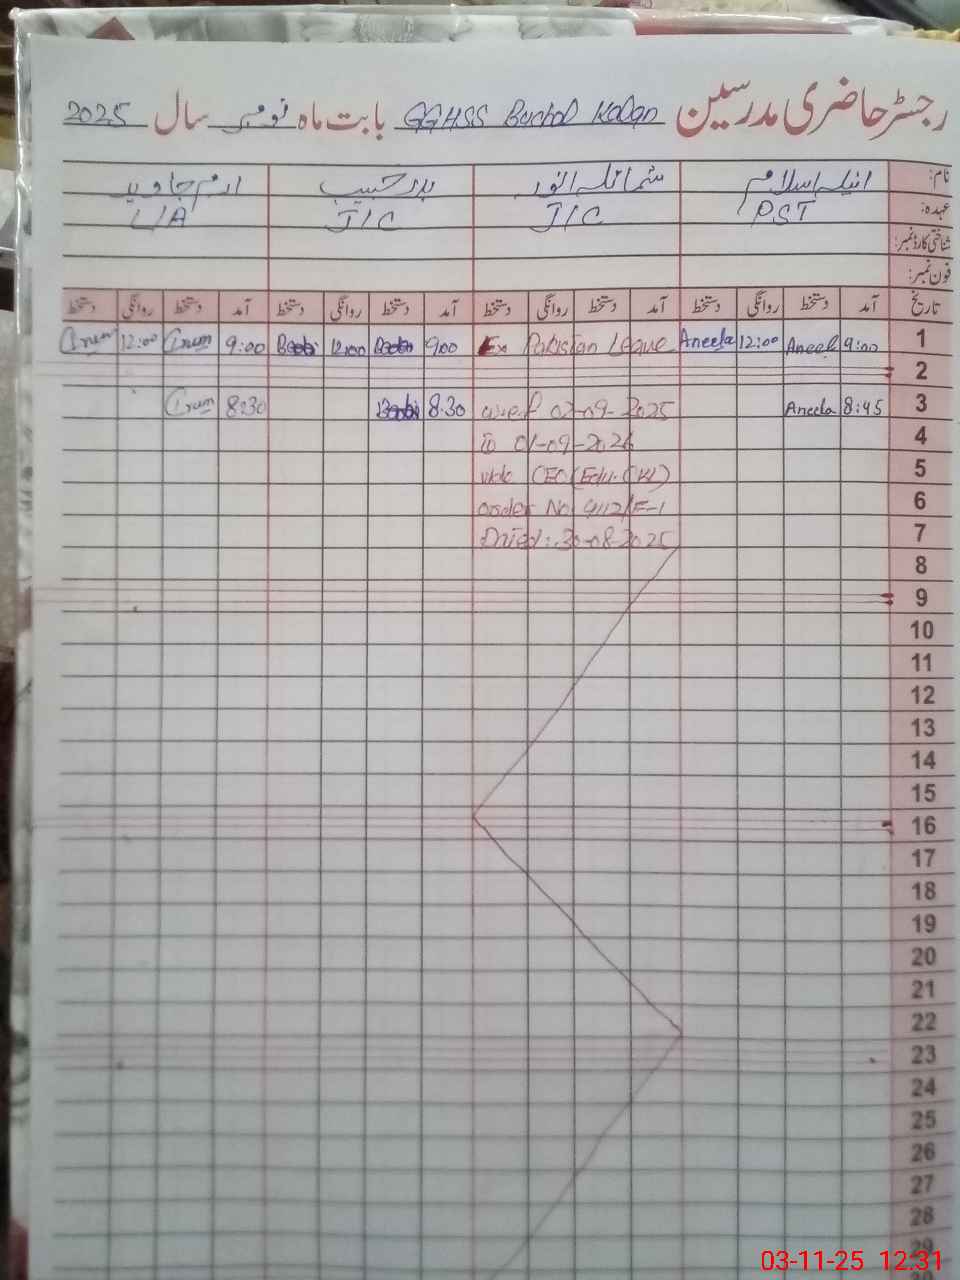 رجسٹر حاضری مدرسین GGHSS Buchal Kalan بابت ماہ نومبر سال 2025
نام: انیلہ اسلام شمائلہ انور بدر حبیب ارم جاوید
عہدہ: PST J/C J/C L/A
شناختی کارڈ نمبر:
فون نمبر:
تاریخ آمد دستخط روانگی دستخط آمد دستخط روانگی دستخط آمد دستخط روانگی دستخط آمد دستخط روانگی دستخط
1 9:00 Aneel 12:00 Aneela Ex Pakistan Leave 9:00 12:00 9:00 Irum 12:00 Irum
2
3 8:45 Aneela w.e.f 02-09-2025 8.30 8:30 Irum
4 to 01-09-2026
5 vide CEO (Edu. CKL)
6 order No 9112/E-1
7 Dated: 30-08-2025
8
9
10
11
12
13
14
15
16
17
18
19
20
21
22
23
24
25
26
27
28
29
03-11-25 12.31